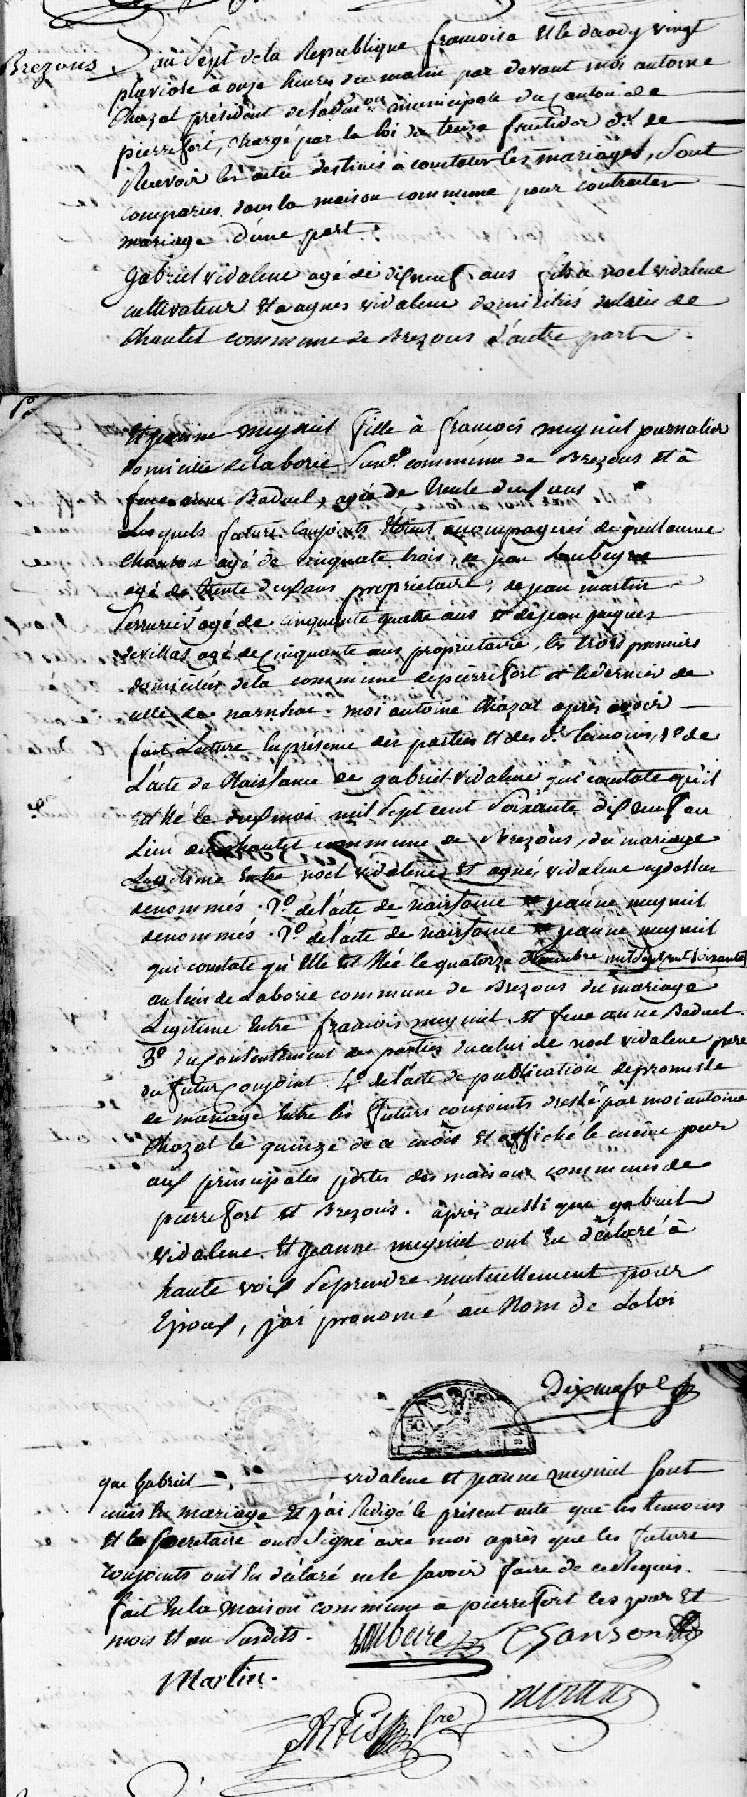 Brezons L'an Sept de la Republique francoise et le decady vingt
pluviose a onze heures du matin par devant moi antoine
Chazal président de l'adm.on municipale du canton de
pierrefort, chargé par la loi du treize fructidor d.r de
Recevoir les actes destinés a constater les mariages, sont
comparus dans la maison commune pour contracter
mariage d'une part.
gabriel vidalenc agé de dixneuf ans fils a noel vidalenc
cultivateur et a agnes vidalenc domiciliés du lieu de
Chaulet commune de Brezons d'autre part.
Et jeanne meyniel fille à francois meyniel journalier
domiciliée de laborie commune de Brezons et à
feue anne Baduel, agée de trente deux ans
Lesquels futurs conjoints étant accompagnés de guillaume
Chanson agé de cinquate trois, de jean Loubeyre
agé de trente deux ans proprietaire, de jean martin
Serrurier agé de cinquante quatre ans et de jean jacques
devillas agé de cinquante ans proprietaire, les trois premiers
domiciliés de la commune de pierrefort et le dernier de
celle de narnhac. moi antoine Chazal après avoir
fait Lecture en présence des parties et des d.s temoins, 1.o de
L'acte de Naissance de gabriel vidalenc qui constate qu'il
est Né le deux mai mil sept cent soixante dix neuf au
Lieu de Chaulet commune de Brezons, du mariage
Légitime Entre noel vidalenc et agnés vidalenc cydessus
denommés. 2.o de l'acte de naissance de jeanne meyniel
denommés. 2.o de l'acte de naissance de jeanne meyniel
qui constate qu'Elle est Née le quatorze mil sept cent soixante
au lieu de Laborie commune de Brezons du mariage
Légitime Entre francois meyniel et feue anne Baduel.
3.o du consentement des parties de celui de noel vidalenc pere
du futur conjoint. 4.o de l'acte de publication de promesse
de mariage Entre les futurs conjoints dressé par moi antoine
Chazal le quinze de ce mois et affiché le même jour
aux principales portes des maisons communes de
pierrefort et Brezons. après aussi que gabriel
vidalenc Et jeanne meyniel ont Eu déclaré à
haute voix se prendre mutuellement pour
Epoux, j'ai prononcé au Nom de La loi
Dixneufve
que Gabriel vidalenc et jeanne meyniel sont
unis En mariage Et j'ai Redigé le présent acte que les temoins
Et le Secretaire ont Signé avec moi après que les futurs
conjoints ont Eu déclaré ne le Savoir faire de ce Requis.
fait En la Maison commune a pierrefort les jour Et
mois Et an Susdits. Loubeire Chanson
Martin.